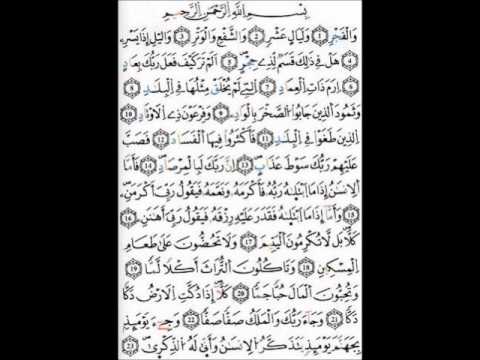 بِسْمِ اللَّهِ الرَّحْمَٰنِ الرَّحِيمِ
وَالْفَجْرِ ① وَلَيَالٍ عَشْرٍ ② وَالشَّفْعِ وَالْوَتْرِ ③ وَاليْلِ إِذَا يَسْرِۦ
④ هَلْ فِي ذَٰلِكَ قَسَمٌ لِّذِي حِجْرٍ ⑤ اَلَمْ تَرَ كَيْفَ فَعَلَ رَبُّكَ بِعَادٍ
⑥ اِرَمَ ذَاتِ الْعِمَادِ ⑦ اِلتِي لَمْ يُخْلَقْ مِثْلُهَا فِي الْبِلَٰدِ ⑧
وَثَمُودَ الَّذِينَ جَابُوا الصَّخْرَ بِالْوَادِ ⑨ وَفِرْعَوْنَ ذِي الَاوْتَادِ ⑩
اِلذِينَ طَغَوْا فِي الْبِلَٰدِ ⑪ فَأَكْثَرُوا فِيهَا الْفَسَادَ ⑫ فَصَبَّ
عَلَيْهِمْ رَبُّكَ سَوْطَ عَذَابٍ ⑬ اِنَّ رَبَّكَ لَبِالْمِرْصَادِ ⑭ فَأَمَّا
الِانسَٰنُ إِذَا مَا ابْتَلَٰهُ رَبُّهُ فَأَكْرَمَهُ وَنَعَّمَهُ فَيَقُولُ رَبِّيَ أَكْرَمَنِۦ
⑮ وَأَمَّا إِذَا مَا ابْتَلَٰهُ فَقَدَرَ عَلَيْهِ رِزْقَهُ فَيَقُولُ رَبِّيَ أَهَٰنَنِۦ
⑯ كَلَّا بَل لَّا تُكْرِمُونَ الْيَتِيمَ ⑰ وَلَا تَحُضُّونَ عَلَىٰ طَعَامِ
الْمِسْكِينِ ⑱ وَتَاكُلُونَ التُّرَاثَ أَكْلًا لَّمًّا ⑲
وَتُحِبُّونَ الْمَالَ حُبًّا جَمًّا ⑳ كَلَّا إِذَا دُكَّتِ الَارْضُ دَكًّا
دَكًّا ㉑ وَجَاءَ رَبُّكَ وَالْمَلَكُ صَفًّا صَفًّا ㉒ وَجِيءَ يَوْمَئِذٍ
بِجَهَنَّمَ يَوْمَئِذٍ يَتَذَكَّرُ الِانسَٰنُ وَأَنَّىٰ لَهُ الذِّكْرَىٰ ㉓